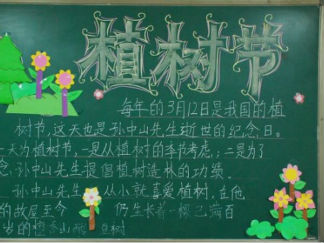 植树节
每年的3月12日是我国的植
树节，这天也是孙中山先生逝世的纪念日。
天为植树节，一是从植树的季节考虑，二是为了
念孙中山先生提倡植树造林的功绩。
孙中山先生从小就喜爱植树，在他
的故屋至今仍生长着一棵已满百
岁的檀香山酸豆树